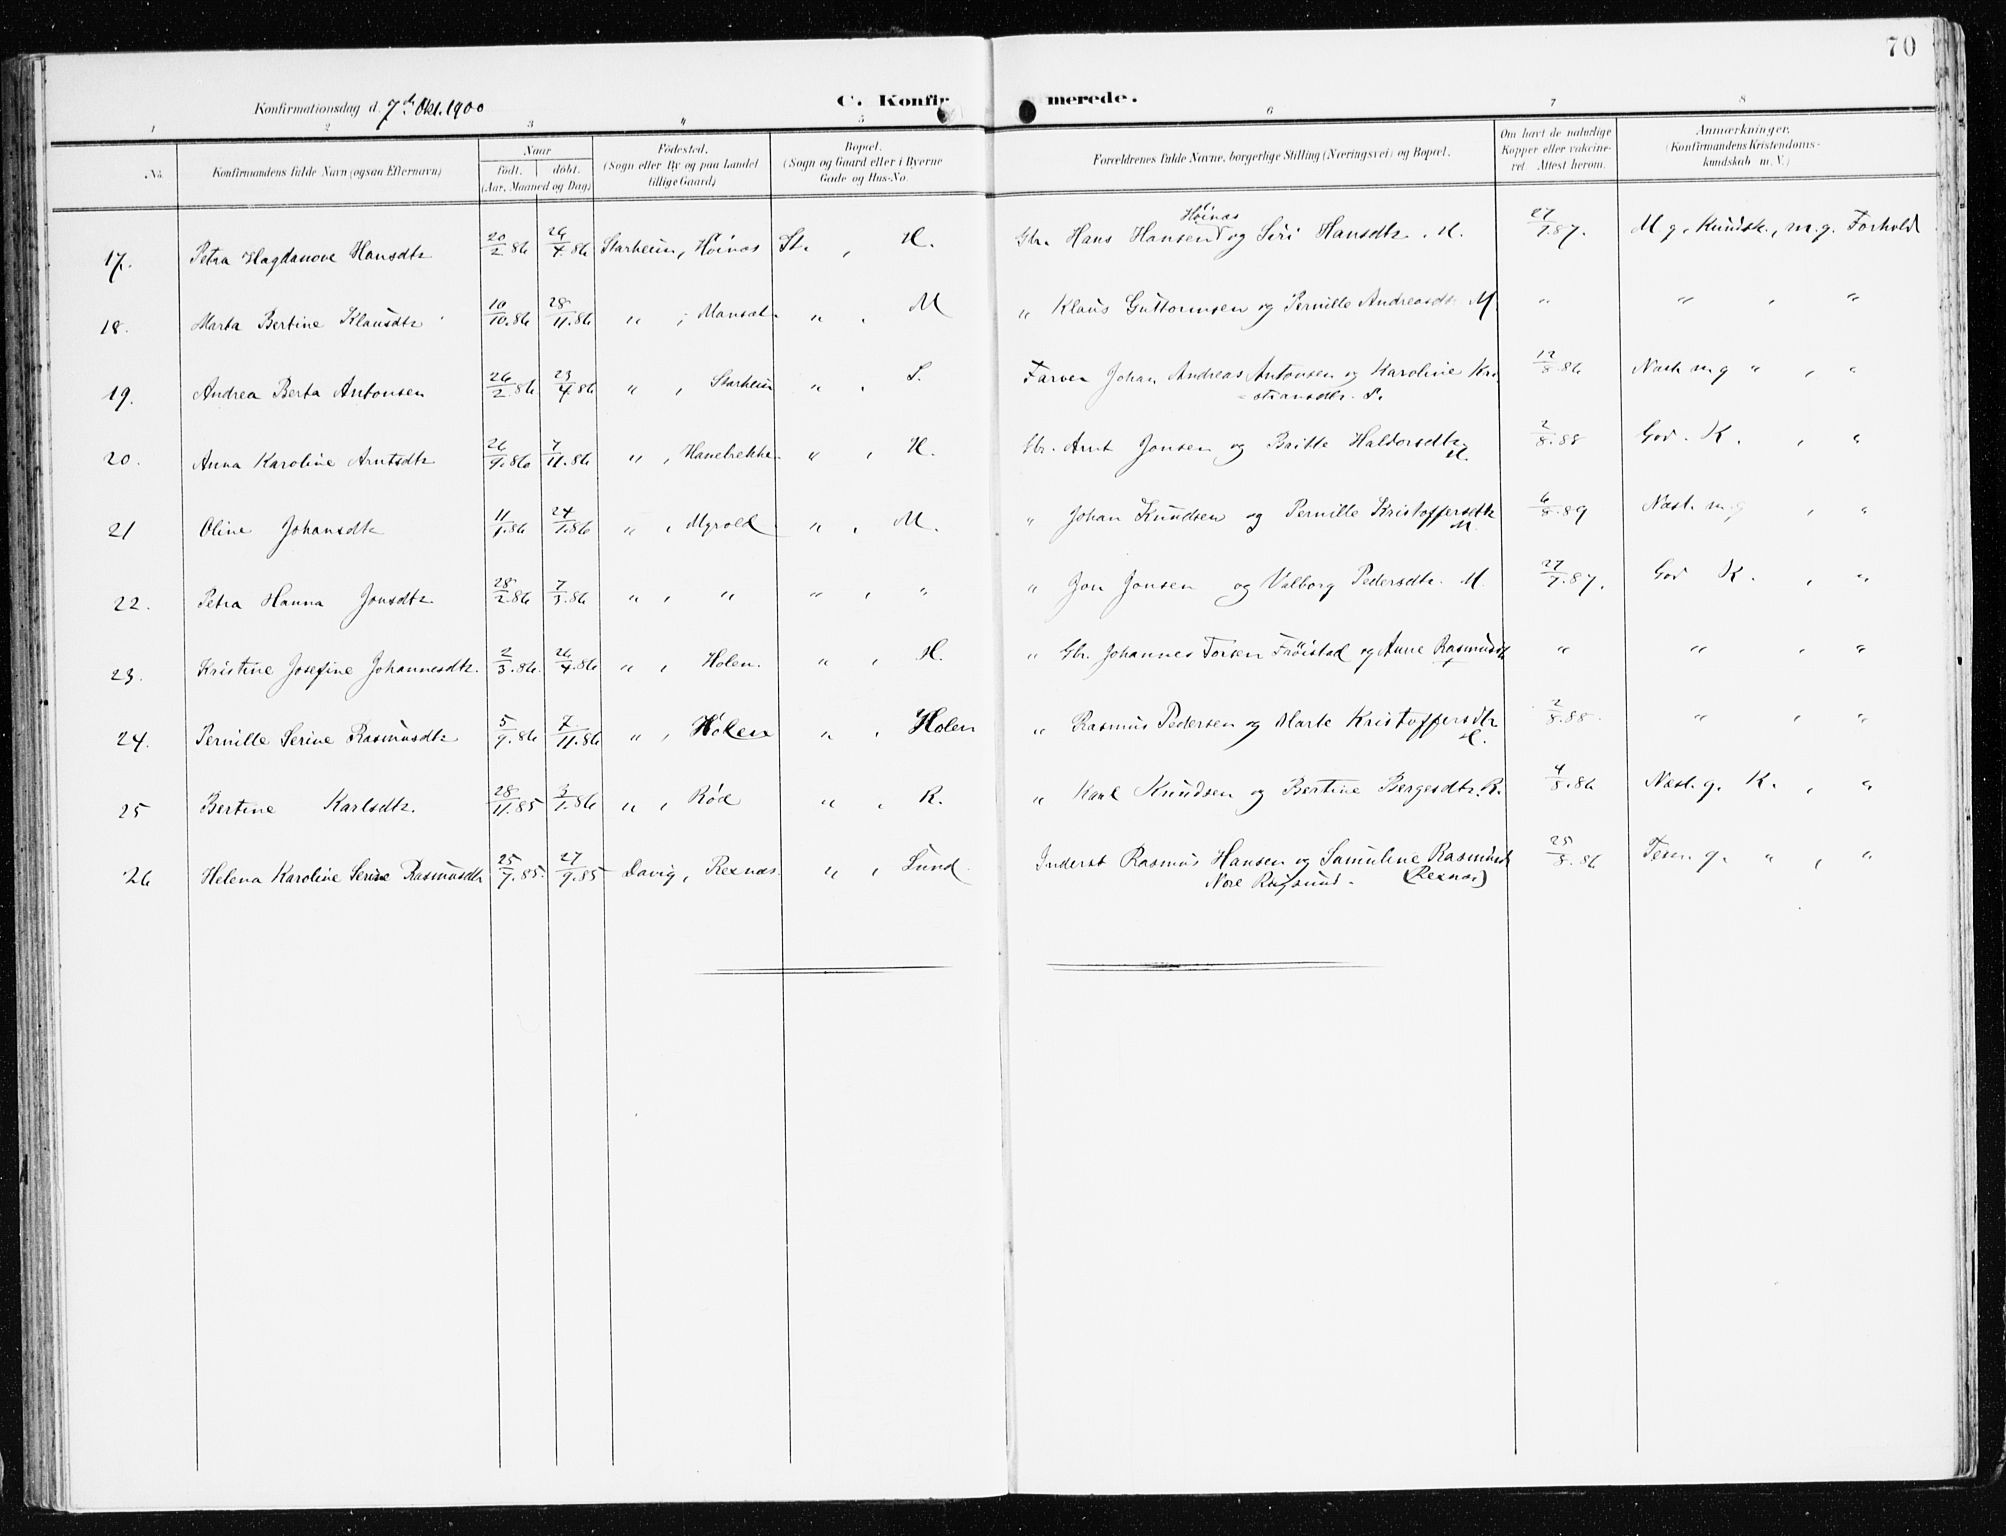 70
Konfirmationsdag d. 7de Okt. 1900
C. Konfirmerede.
1 2 3 4 5 6 7 8
No. Konfirmandens fulde Navn (ogsaa Efternavn) Naar Födt. döbt. (Aar, Maaned og Dag) Födested. (Sogn eller By og paa Landet tillige Gaard) Bopæl. (Sogn og Gaard eller i Byerne Gade og Hus-No. Forældrenes fulde Navne, borgerlige Stilling (Næringsvei) og Bopæl. Om havt de naturlige Kopper eller vakcineret. Attest herom. Anmærkninger. (Konfirmandens Kristendomskundskab m. V.)
17. Petra Hagdanove Hansdtr 20/2 86 26/4 86 Starheim, Höinæs St. , H. Gbr. Hans Hansen Höinæs og Siri Hansdtr. H. 27/7.87. M g. Kundsk., m.g. Forhold
18. Marta Bertine Klausdtr 10/10.86 28/11.86 " , Mansæt " , M " Klaus Guttormsen og Pernille Andreasdtr M. " " , "
19. Andrea Berta Antonsen 26/2.86 23/4.86 " , Starheim " , S. Farver Johan Andreas Antonsen og Karoline Kristiansdtr. S. 12/8.86 Næst. m g " , "
20. Anna Karoline Arntsdtr 26/9.86 7/11.86 " , Hanebrekke " , H. Gbr. Arnt Jonsen og Britte Haldorsdtr H. 2/8.88 God. K. , "
21 Oline Johansdtr 11/1.86 24/1.86 " , Myrold " , M. " Johan Knudsen og Pernille Kristoffersdtr M. 6/8.89 Næst. m g , "
22. Petra Hanna Jonsdtr 28/2.86 7/3.86 " , " " , " " Jon Jonsen og Valborg Pedersdtr. M. 27/7.87. God K. , "
23. Kristine Josefine Johannesdtr. 2/3.86. 26/4.86 " , Holen. " , H. " Gbr. Johannes Torsen Fröistad og Anne Rasmusdtr " " , "
24. Pernille Serine Rasmusdtr 5/9.86 7/11.86 " , Holen " , Holen " Rasmus Pedersen og Marte Kristoffersdtr H. 2/8.88. " , "
25 Bertine Karlsdtr. 28/11.85 3/1.86 " , Röd " , R. " Karl Knudsen og Bertine Bergesdtr. R. 4/8.86 Næst. g. K. , "
26 Helena Karoline Serine Rasmusdtr 25/7.85. 27/9.85 Davig, Rexnæs " , Lund. Inderst Rasmus Hansen og Samuline Rasmusdt Nore Rugsund. (Rexnæs) 25/8.86 Tem. g. " , "